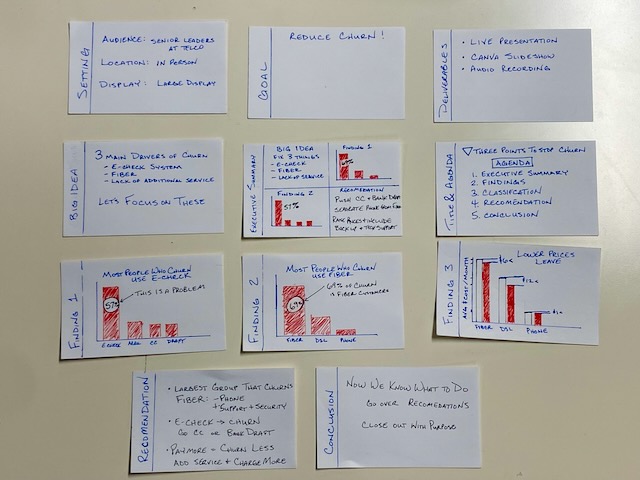 SETTING
AUDIENCE: SENIOR LEADERS
AT TELCO
LOCATION: IN PERSON
DISPLAY: LARGE DISPLAY
GOAL
REDUCE CHURN!
DELIVERABLES
• LIVE PRESENTATION
• CANVA SLIDESHOW
• AUDIO RECORDING
BIG IDEA
3 MAIN DRIVERS OF CHURN
- E-CHECK SYSTEM
- FIBER
- LACK OF ADDITIONAL SERVICE
LETS FOCUS ON THESE
EXECUTIVE SUMMARY
BIG IDEA
FIX 3 THINGS
- E-CHECK
- FIBER
- LACK OF SERVICE
FINDING 1
FINDING 2
57%
RECOMEDATION
PUSH CC + BANK DRAFT
SEPARATE PHONE FROM FIBER
BACK UP + TECH SUPPORT
TITLE & AGENDA
THREE POINTS TO STOP CHURN
AGENDA
1. EXECUTIVE SUMMARY
2. FINDINGS
3. CLASSIFCATION
4. RECOMENDATION
5. CONCLUSION
FINDING 1
MOST PEOPLE WHO CHURN
USE E-CHECK
57%
THIS IS A PROBLEM
ECHECK MAIL CC DRAFT
FINDING 2
MOST PEOPLE WHO CHURN
USE FIBER
69%
69% OF CHURN
IS FIBER CUSTOMERS
FIBER DSL PHONE
FINDING 3
LOWER PRICES
LEAVE
AVG $ COST/MONTH
FIBER DSL PHONE
RECOMENDATION
• LARGEST GROUP THAT CHURNS
FIBER: - PHONE
+ SUPPORT + SECURITY
• E-CHECK → CHURN
GO CC OR BANK DRAFT
• PAY MORE = CHURN LESS
ADD SERVICE + CHARGE MORE
CONCLUSION
NOW WE KNOW WHAT TO DO
GO OVER RECOMEDATIONS
CLOSE OUT WITH PURPOSE